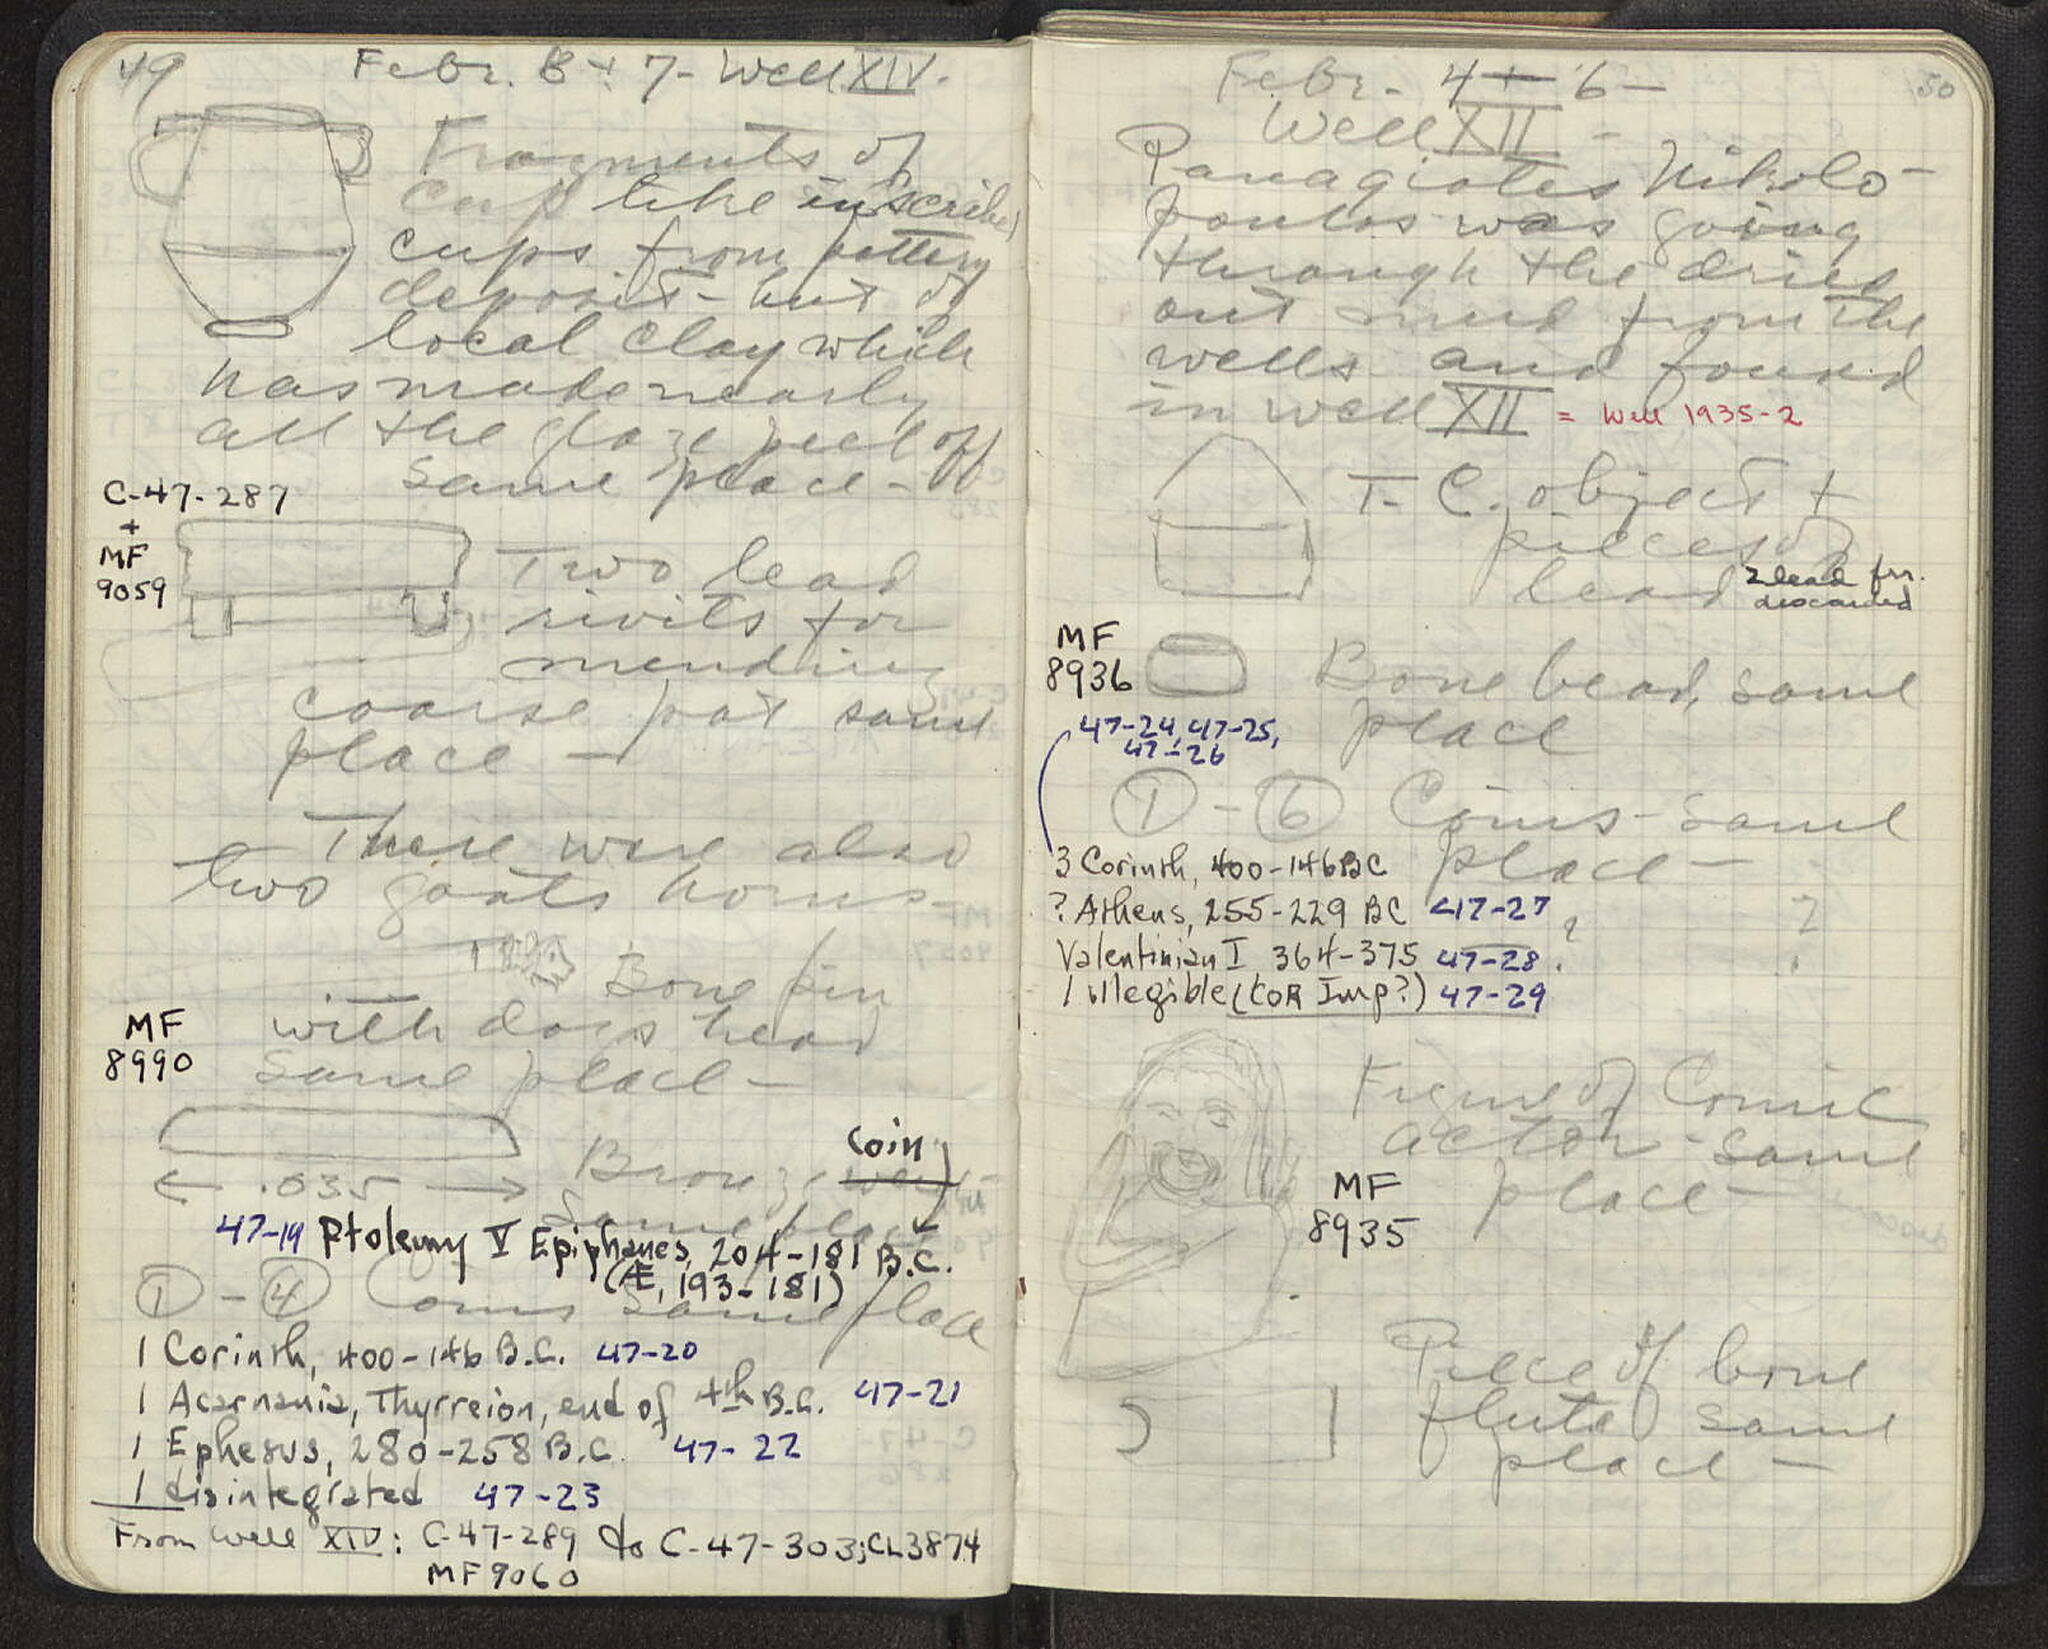 49
Febr. 8 + 7 - Well XIV.
Fragments of
cup like inscribed
cups from pottery
deposit - but of
local clay which
has made nearly
all the glaze peel off
same place -
C-47-287
+
MF
9059
Two lead
rivits for
mending
coarse pot same
place -
There were also
two goats horns -
Bone pin
MF
8990
with dogs head
same place -
Coin
Bronze weight
.035
same place
47-19 Ptolemy V Epiphanes, 204-181 B.C.
(Æ, 193-181)
1 - 4 Coins same place
1 Corinth, 400-146 B.C. 47-20
1 Acarnania, Thyrreion, end of 4th B.C. 47-21
1 Ephesus, 280-258 B.C. 47-22
1 disintegrated 47-23
From Well XIV: C-47-289 to C-47-303; CL3874
MF 9060
50
Febr. 4 + 6 -
Well XII -
Panagiotes Nikolo-
poulos was going
through the dried
out mud from the
wells and found
in well XII = Well 1935-2
T.C. object +
pieces of
lead 2 lead frr.
discarded
MF
8936
Bone bead, same
place
47-24, 47-25,
47-26
1 - 6 Coins - same
place -
3 Corinth, 400-146 BC
? Athens, 255-229 BC 47-27 ?
Valentinian I 364-375 47-28
1 illegible (COR Imp?) 47-29
Figure of Comic
actor - same
place -
MF
8935
Piece of bone
flute same
place -